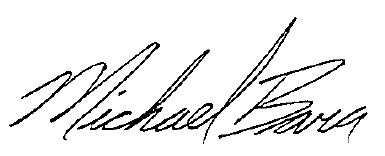 Michael Bara